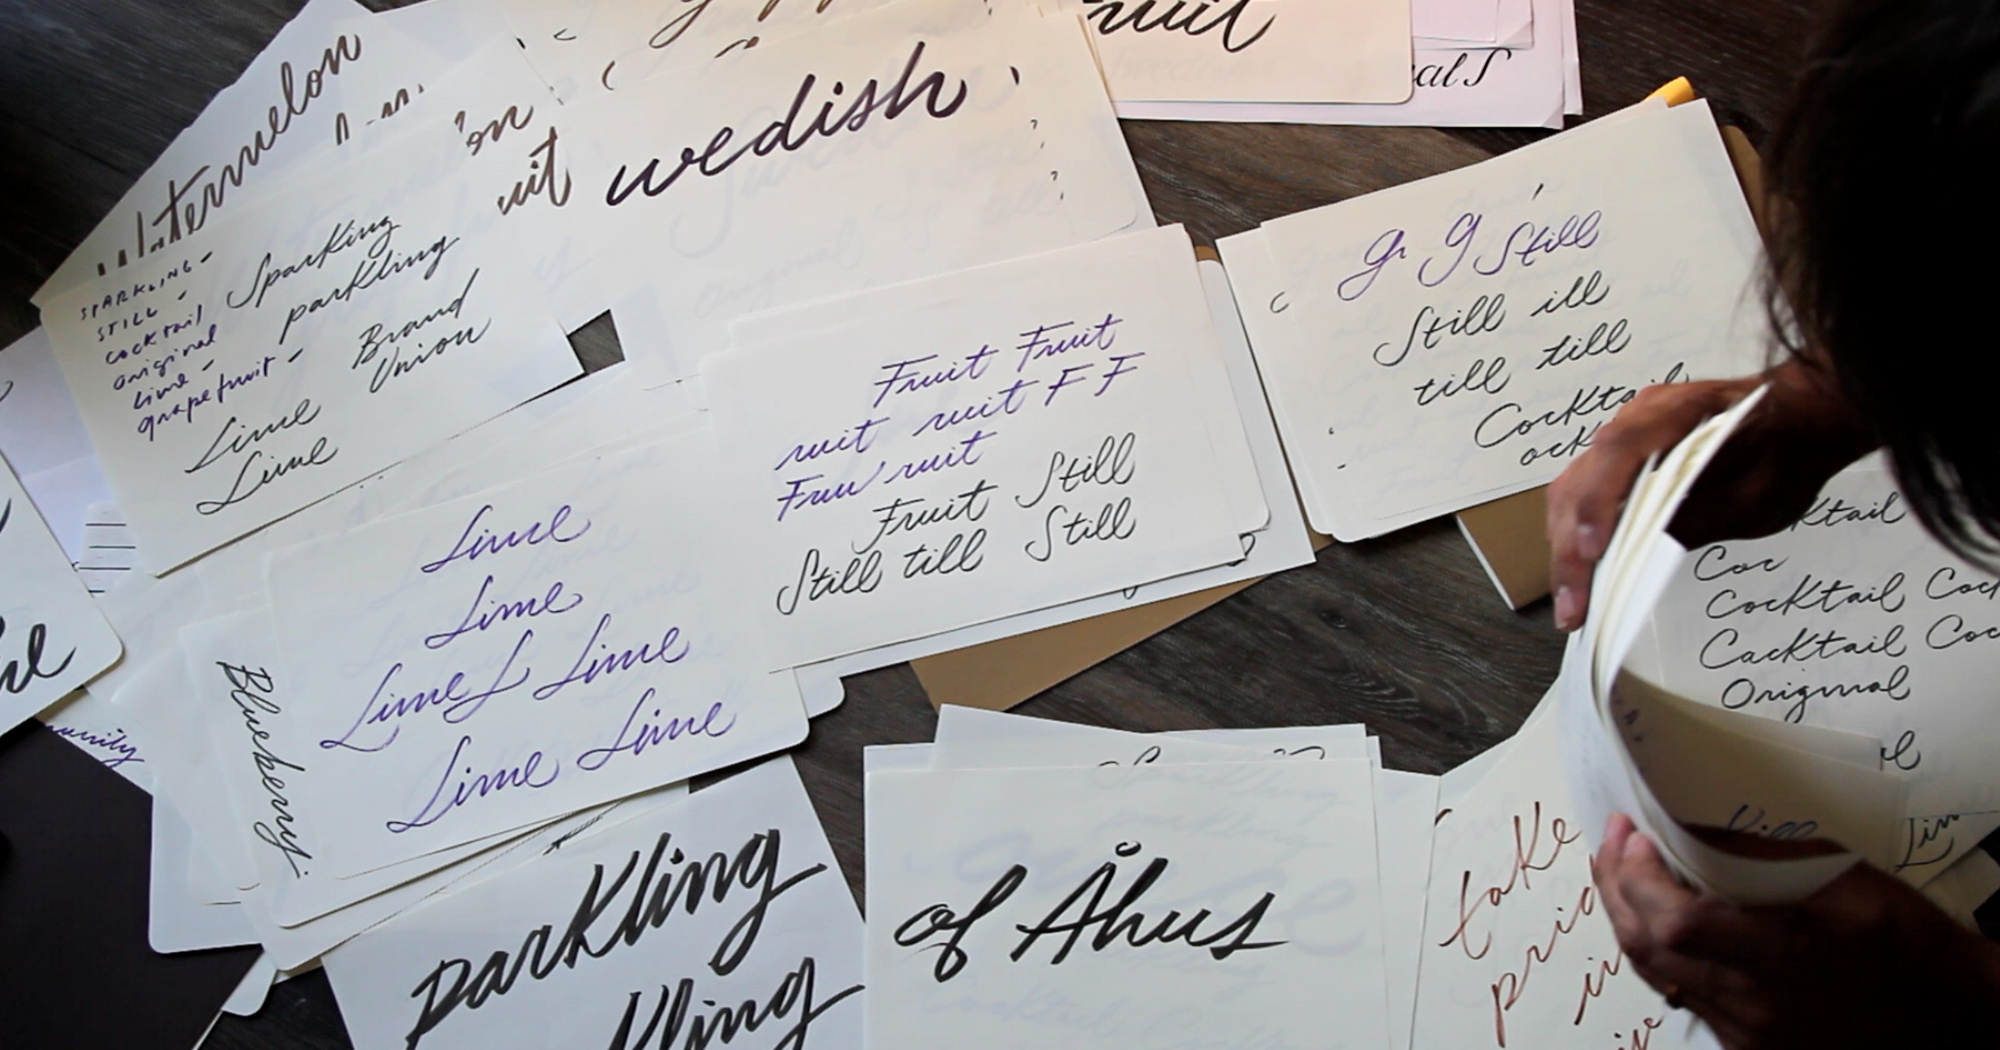 Watermelon
on
uit
wedish
ruit
al S
SPARKLING -
STILL -
cocktail
original
Lime -
grapefruit -
Sparkling
parkling
Brand
Union
Lime
Lime
Fruit Fruit
ruit ruit F F
Fruu ruit
Fruit Still
Still till Still
g g Still
Still ill
till till
Cockta
ock
Lime
Lime
Lime L Lime
Lime Lime
Blueberry
unity
parkling
kling
of Åhus
ktail
Coc
Cocktail Coc
Cacktail Coc
Original
Lim
take
prid
in